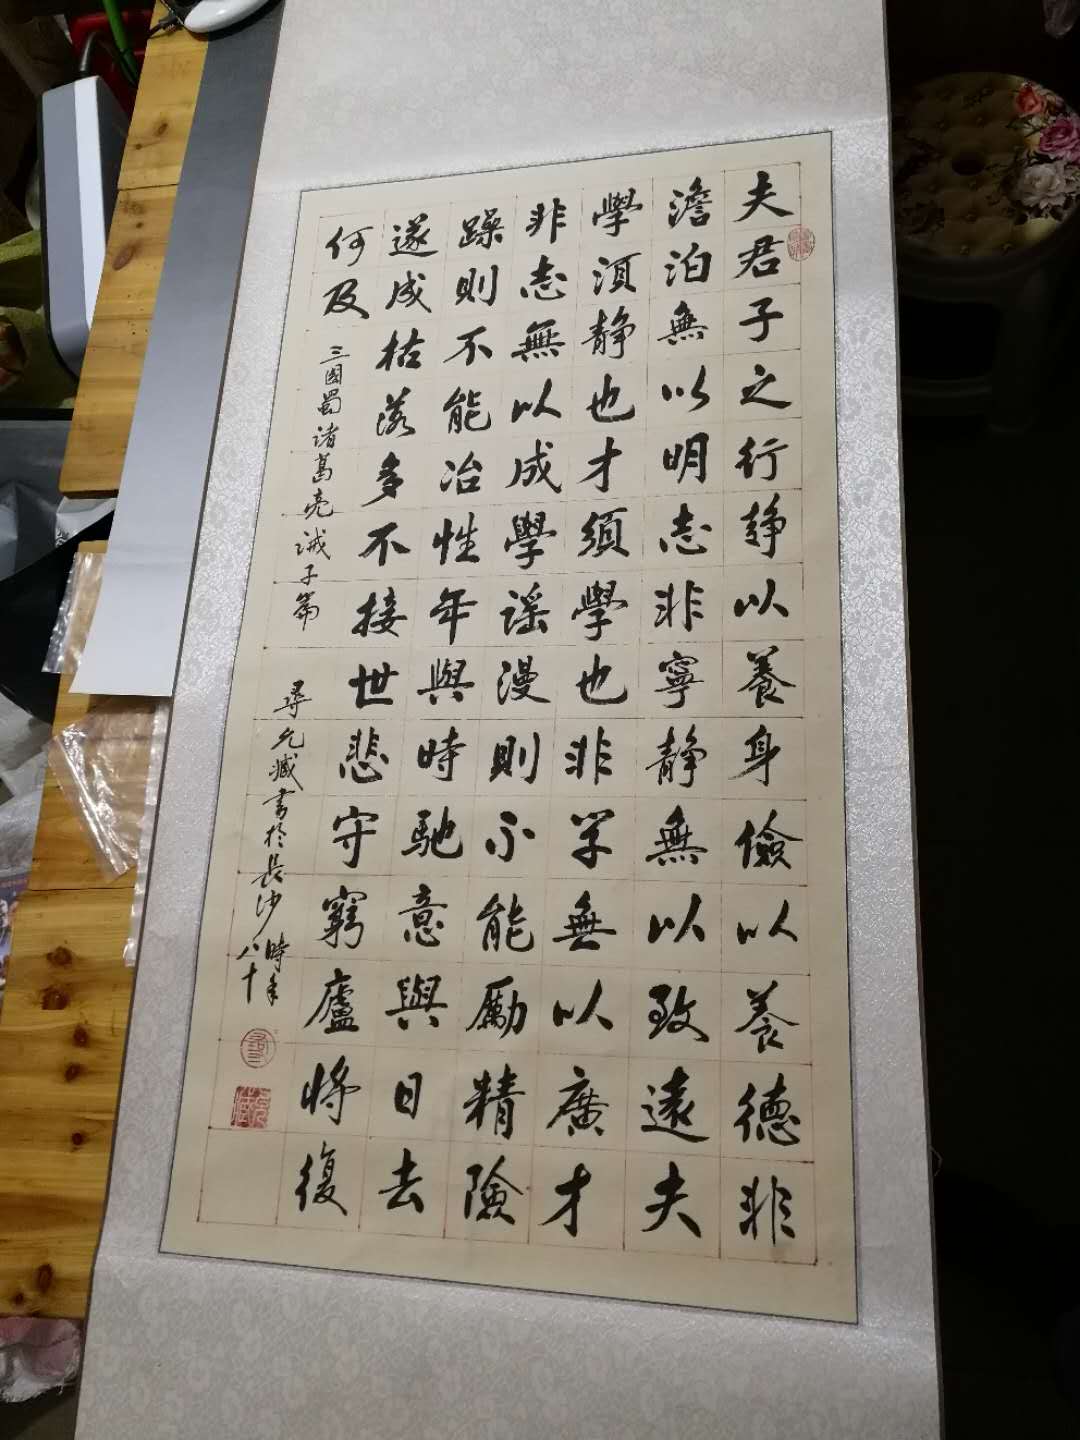 夫君子之行静以養身儉以養德非
澹泊無以明志非寧靜無以致遠夫
學須靜也才須學也非学無以廣才
非志無以成學謡漫則不能勵精險
躁則不能冶性年與時馳意與日去
遂成枯落多不接世悲守窮廬將復
何及
三國蜀诸葛亮诫子篇
尋允臧書於長沙
時年
八十